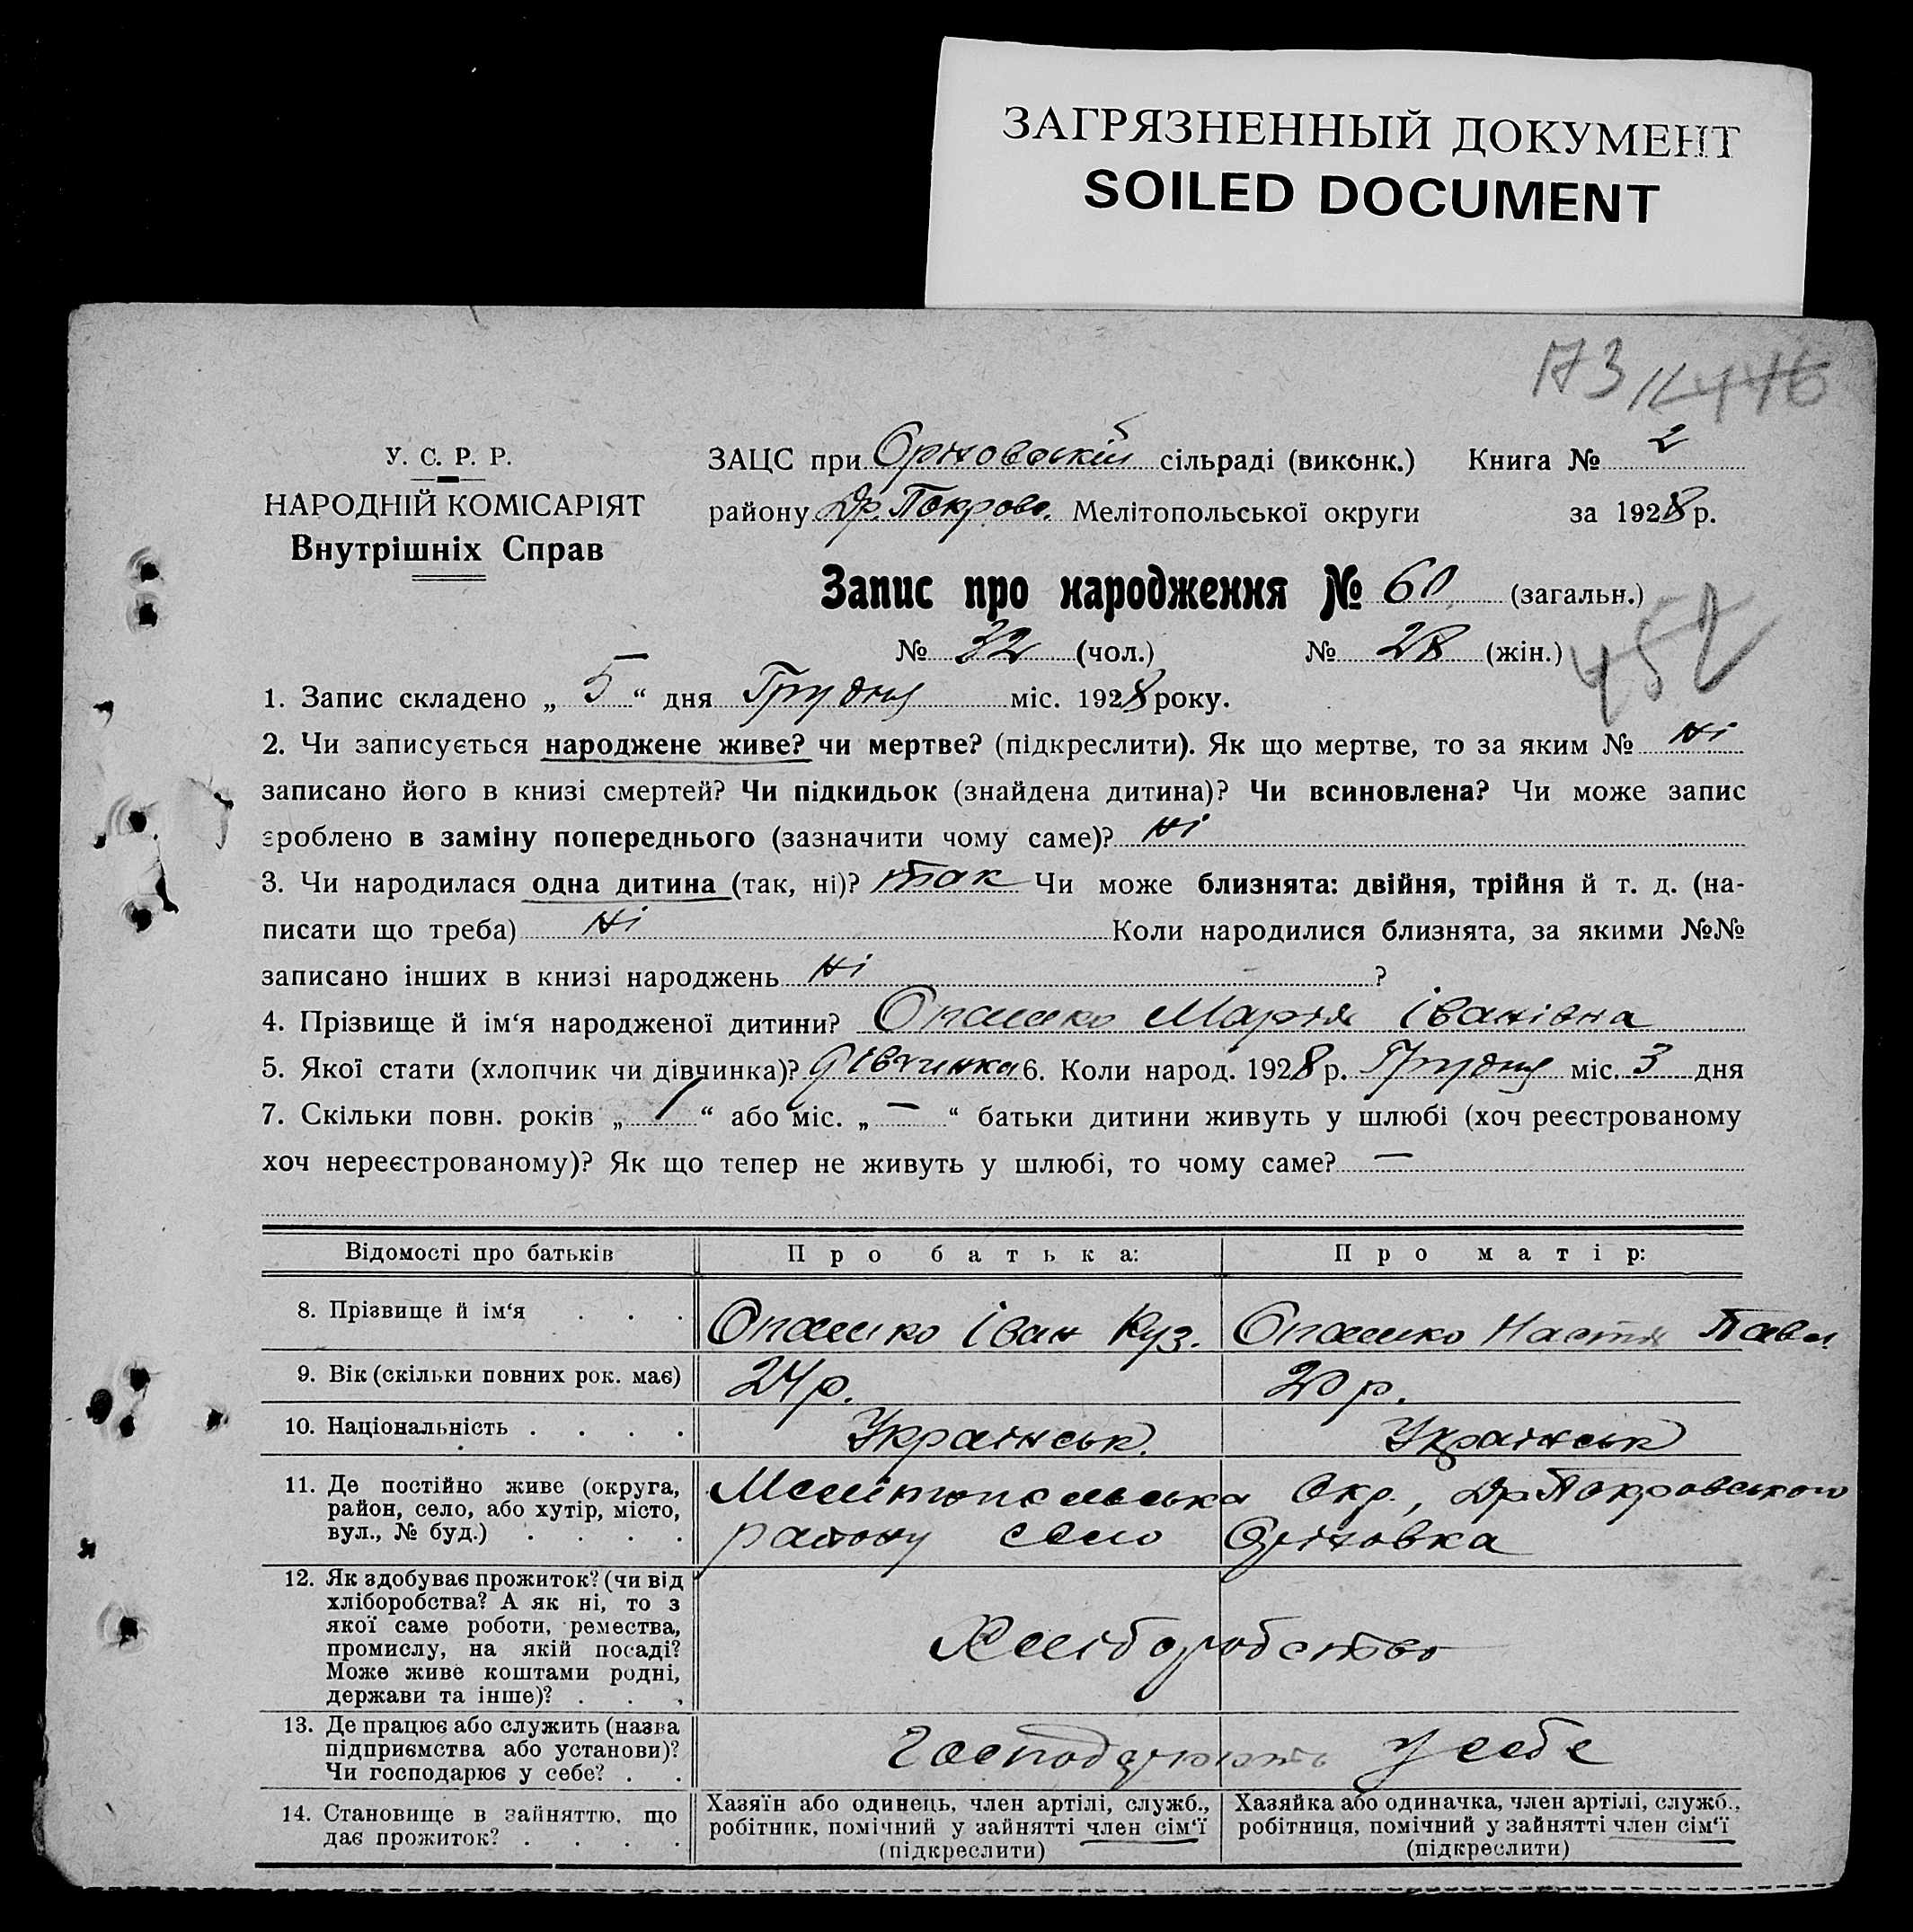 ЗАГРЯЗНЕННЫЙ ДОКУМЕНТ
SOILED DOCUMENT
173
446
У. С. Р. Р.
НАРОДНІЙ КОМІСАРІЯТ
Внутрішніх Справ
ЗАЦС при сільраді (виконк.) Книга № 2
району Др. Покров. Мелітопольської округи за 1928 р.
Запис про народження № 60 (загальн.)
№ 32 (чол.) № 28 (жін.)
452
1. Запис складено „ 5 “ дня Грудня міс. 1928 року.
2. Чи записується народжене живе? чи мертве? (підкреслити). Як що мертве, то за яким № Ні
записано його в книзі смертей? Чи підкидьок (знайдена дитина)? Чи всиновлена? Чи може запис
зроблено в заміну попереднього (зазначити чому саме)? Ні
3. Чи народилася одна дитина (так, ні)? так Чи може близнята: двійня, трійня й т. д. (на-
писати що треба) Ні Коли народилися близнята, за якими №№
записано інших в книзі народжень Ні ?
4. Прізвище й ім‘я народженої дитини? Опашко Марія Іванівна
5. Якої стати (хлопчик чи дівчинка)? дівчинка 6. Коли народ. 1928 р. Грудня міс. 3 дня
7. Скільки повн. років „ 1 “ або міс. „ — “ батьки дитини живуть у шлюбі (хоч реєстрованому
хоч нереєстрованому)? Як що тепер не живуть у шлюбі, то чому саме? —
Відомості про батьків Про батька: Про матір:
8. Прізвище й ім‘я . . . Опашко Іван Куз. Опашко Настя Павл.
9. Вік (скільки повних рок. має) 24 р. 20 р.
10. Національність . . . . Українськ. Українськ
11. Де постійно живе (округа,
район, село, або хутір, місто,
вул., № буд.) . . . .
Мелітопольська Окр., Др. Покровського
району село Орловка
12. Як здобуває прожиток? (чи від
хліборобства? А як ні, то з
якої саме роботи, ремества,
промислу, на якій посаді?
Може живе коштами родні,
держави та інше)? . . .
Хліборобство
13. Де працює або служить (назва
підприємства або установи)?
Чи господарює у себе? . .
Господарюють у себе
14. Становище в зайняттю, що
дає прожиток? . . . .
Хазяїн або одинець, член артілі, служб.,
робітник, помічний у зайнятті член сім‘ї
(підкреслити)
Хазяйка або одиначка, член артілі, служб.,
робітниця, помічний у зайнятті член сім‘ї
(підкреслити)